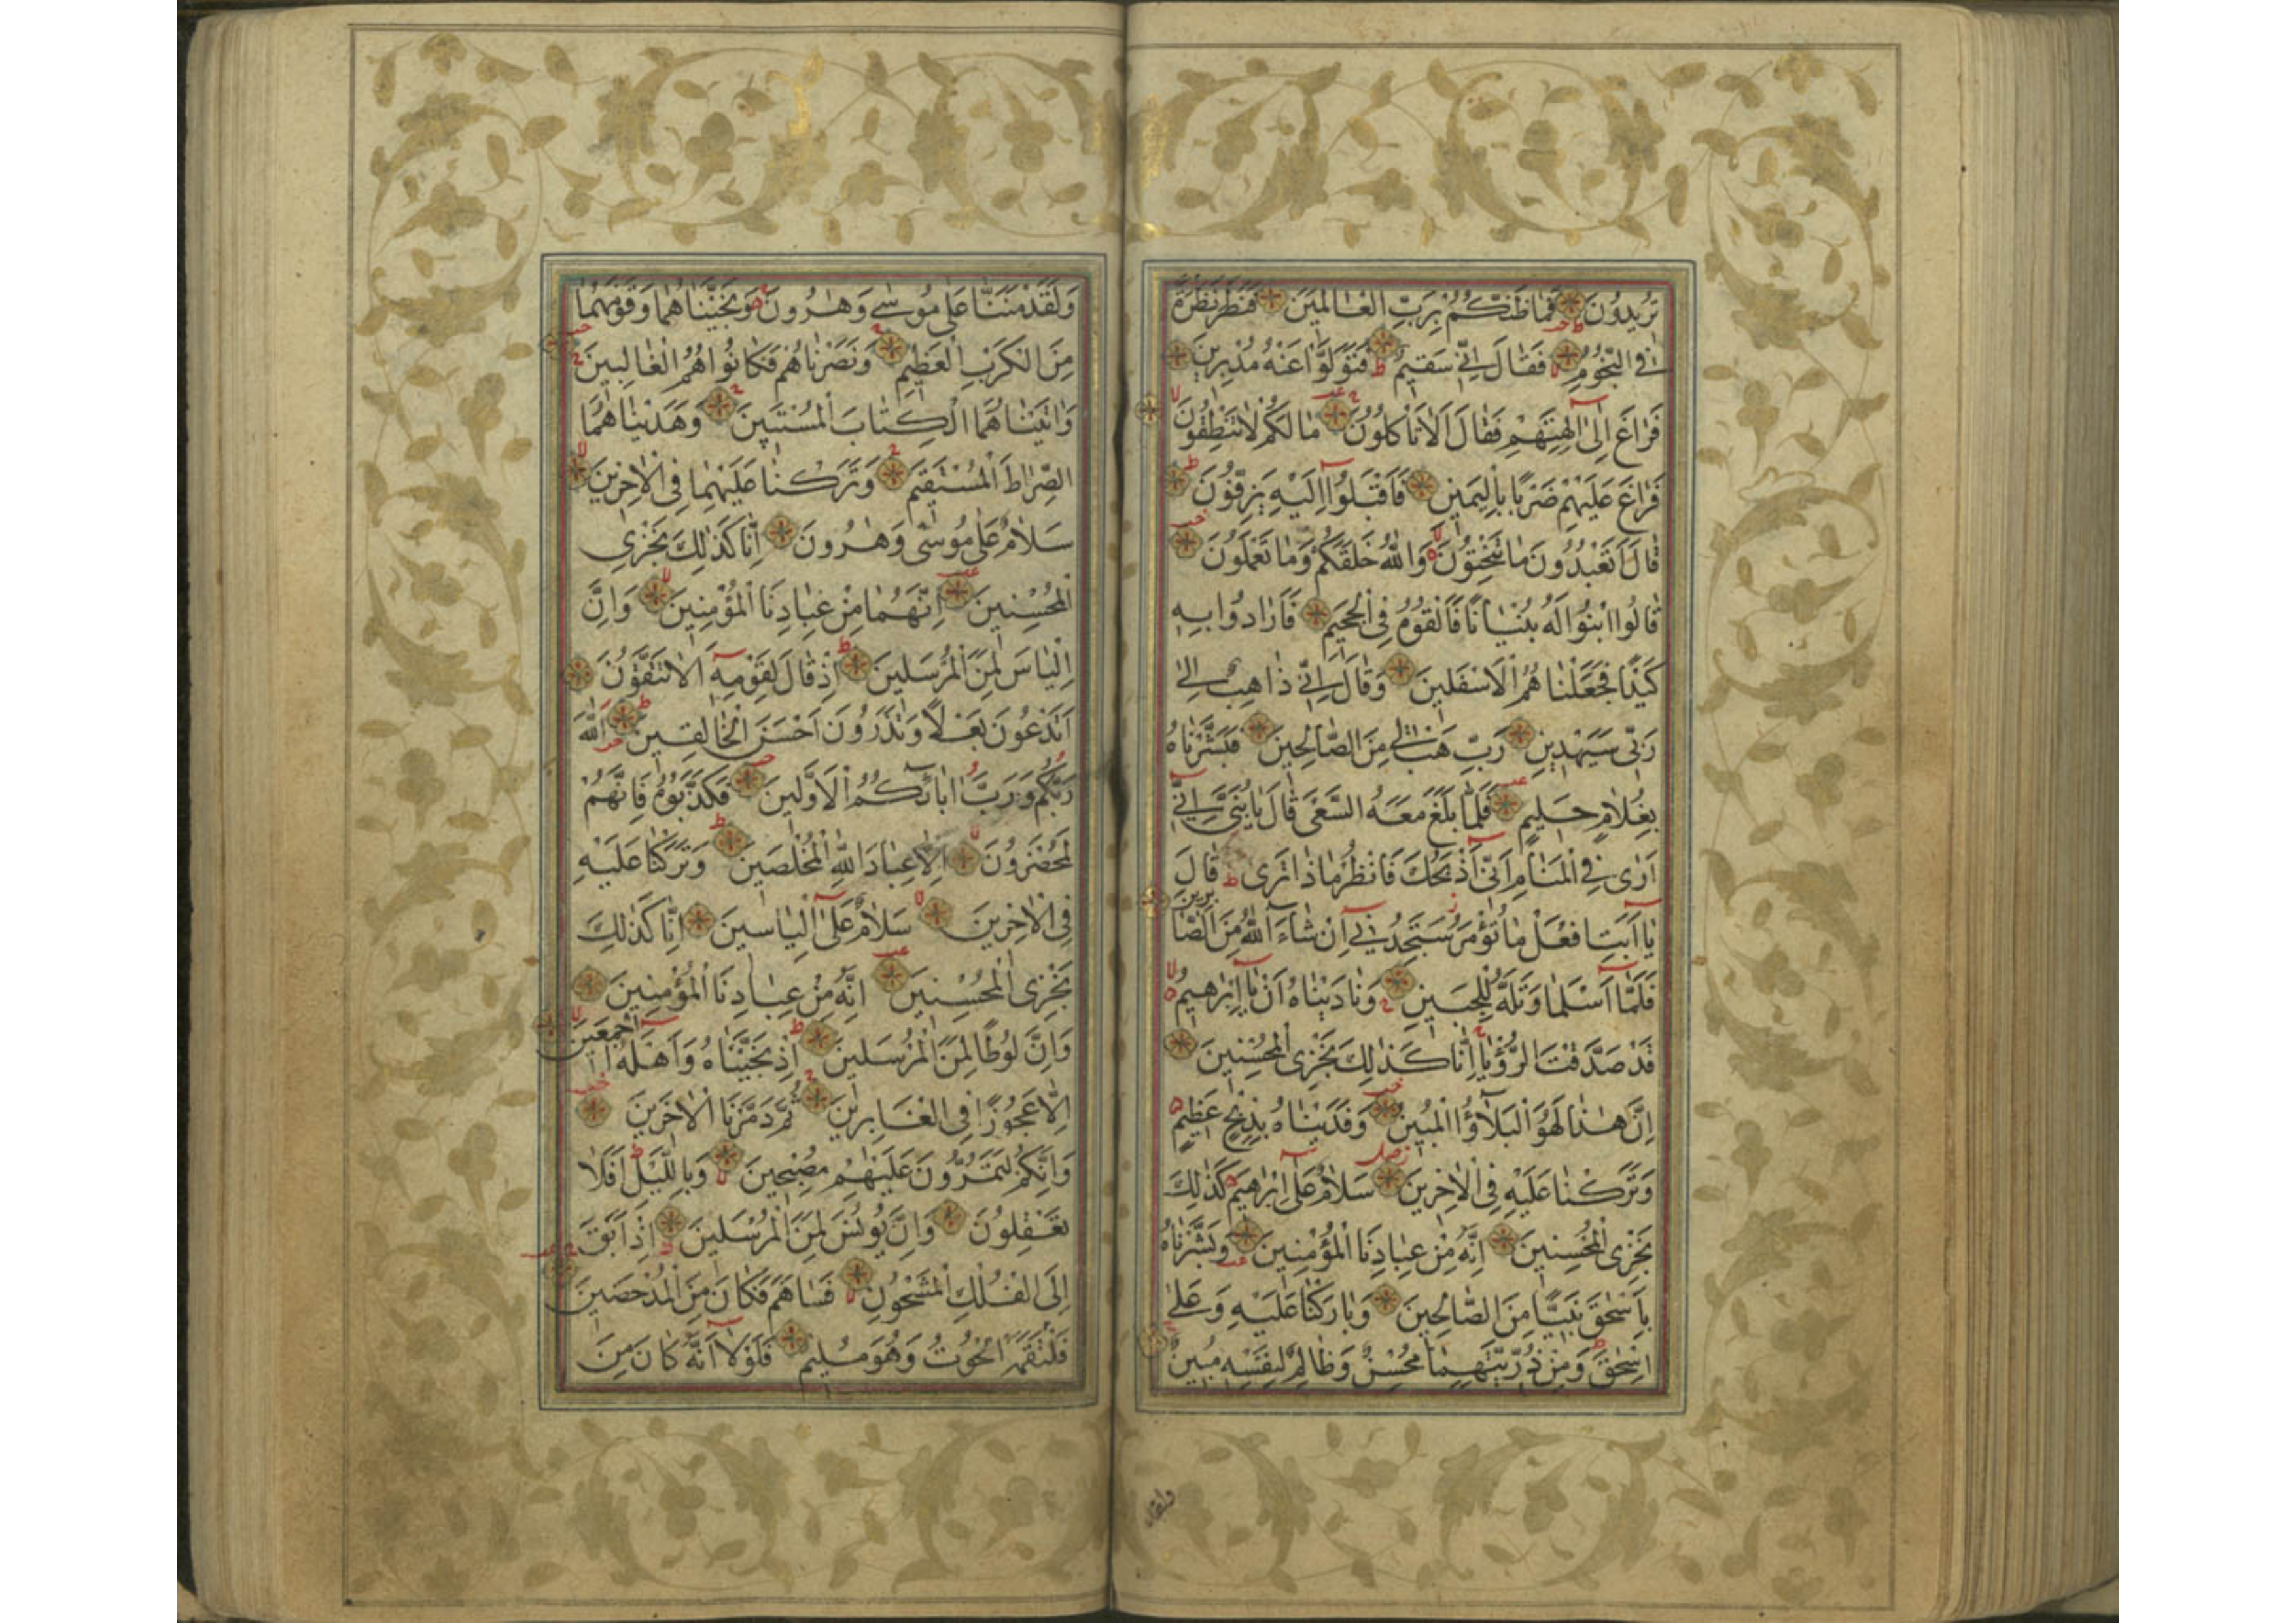 تُرِيدُونَ فَمَا ظَنُّكُمْ بِرَبِّ الْعَالَمِينَ فَنَظَرَ نَظْرَةً
فِي النُّجُومِ فَقَالَ اِنِّي سَقِيمٌ فَتَوَلَّوْا عَنْهُ مُدْبِرِينَ
فَرَاغَ اِلٰى اٰلِهَتِهِمْ فَقَالَ اَلَا تَأْكُلُونَ مَا لَكُمْ لَا تَنْطِقُونَ
فَرَاغَ عَلَيْهِمْ ضَرْبًا بِالْيَمِينِ فَاَقْبَلُوا اِلَيْهِ يَزِفُّونَ
قَالَ اَتَعْبُدُونَ مَا تَنْحِتُونَ وَاللّٰهُ خَلَقَكُمْ وَمَا تَعْمَلُونَ
قَالُوا ابْنُوا لَهُ بُنْيَانًا فَاَلْقُوهُ فِي الْجَحِيمِ فَاَرَادُوا بِهِ
كَيْدًا فَجَعَلْنَاهُمُ الْاَسْفَلِينَ وَقَالَ اِنِّي ذَاهِبٌ اِلٰى
رَبِّي سَيَهْدِينِ رَبِّ هَبْ لِي مِنَ الصَّالِحِينَ فَبَشَّرْنَاهُ
بِغُلَامٍ حَلِيمٍ فَلَمَّا بَلَغَ مَعَهُ السَّعْيَ قَالَ يَا بُنَيَّ اِنِّي
اَرٰى فِي الْمَنَامِ اَنِّي اَذْبَحُكَ فَانْظُرْ مَاذَا تَرٰى قَالَ
يَا اَبَتِ افْعَلْ مَا تُؤْمَرُ سَتَجِدُنِي اِنْ شَاءَ اللّٰهُ مِنَ الصَّابِرِينَ
فَلَمَّا اَسْلَمَا وَتَلَّهُ لِلْجَبِينِ وَنَادَيْنَاهُ اَنْ يَا اِبْرٰهِيمُ
قَدْ صَدَّقْتَ الرُّؤْيَا اِنَّا كَذٰلِكَ نَجْزِي الْمُحْسِنِينَ
اِنَّ هٰذَا لَهُوَ الْبَلَاؤُا الْمُبِينُ وَفَدَيْنَاهُ بِذِبْحٍ عَظِيمٍ
وَتَرَكْنَا عَلَيْهِ فِي الْاٰخِرِينَ سَلَامٌ عَلٰى اِبْرٰهِيمَ كَذٰلِكَ
نَجْزِي الْمُحْسِنِينَ اِنَّهُ مِنْ عِبَادِنَا الْمُؤْمِنِينَ وَبَشَّرْنَاهُ
بِاِسْحٰقَ نَبِيًّا مِنَ الصَّالِحِينَ وَبَارَكْنَا عَلَيْهِ وَعَلٰى
اِسْحٰقَ وَمِنْ ذُرِّيَّتِهِمَا مُحْسِنٌ وَظَالِمٌ لِنَفْسِهِ مُبِينٌ
وَلَقَدْ مَنَنَّا عَلٰى مُوسٰى وَهٰرُونَ وَنَجَّيْنَاهُمَا وَقَوْمَهُمَا
مِنَ الْكَرْبِ الْعَظِيمِ وَنَصَرْنَاهُمْ فَكَانُوا هُمُ الْغَالِبِينَ
وَاٰتَيْنَاهُمَا الْكِتَابَ الْمُسْتَبِينَ وَهَدَيْنَاهُمَا
الصِّرَاطَ الْمُسْتَقِيمَ وَتَرَكْنَا عَلَيْهِمَا فِي الْاٰخِرِينَ
سَلَامٌ عَلٰى مُوسٰى وَهٰرُونَ اِنَّا كَذٰلِكَ نَجْزِي
الْمُحْسِنِينَ اِنَّهُمَا مِنْ عِبَادِنَا الْمُؤْمِنِينَ وَاِنَّ
اِلْيَاسَ لَمِنَ الْمُرْسَلِينَ اِذْ قَالَ لِقَوْمِهِ اَلَا تَتَّقُونَ
اَتَدْعُونَ بَعْلًا وَتَذَرُونَ اَحْسَنَ الْخَالِقِينَ اَللّٰهَ
رَبَّكُمْ وَرَبَّ اٰبَائِكُمُ الْاَوَّلِينَ فَكَذَّبُوهُ فَاِنَّهُمْ
لَمُحْضَرُونَ اِلَّا عِبَادَ اللّٰهِ الْمُخْلَصِينَ وَتَرَكْنَا عَلَيْهِ
فِي الْاٰخِرِينَ سَلَامٌ عَلٰى اِلْيَاسِينَ اِنَّا كَذٰلِكَ
نَجْزِي الْمُحْسِنِينَ اِنَّهُ مِنْ عِبَادِنَا الْمُؤْمِنِينَ
وَاِنَّ لُوطًا لَمِنَ الْمُرْسَلِينَ اِذْ نَجَّيْنَاهُ وَاَهْلَهُ اَجْمَعِينَ
اِلَّا عَجُوزًا فِي الْغَابِرِينَ ثُمَّ دَمَّرْنَا الْاٰخَرِينَ
وَاِنَّكُمْ لَتَمُرُّونَ عَلَيْهِمْ مُصْبِحِينَ وَبِاللَّيْلِ اَفَلَا
تَعْقِلُونَ وَاِنَّ يُونُسَ لَمِنَ الْمُرْسَلِينَ اِذْ اَبَقَ
اِلَى الْفُلْكِ الْمَشْحُونِ فَسَاهَمَ فَكَانَ مِنَ الْمُدْحَضِينَ
فَالْتَقَمَهُ الْحُوتُ وَهُوَ مُلِيمٌ فَلَوْلَا اَنَّهُ كَانَ مِنَ